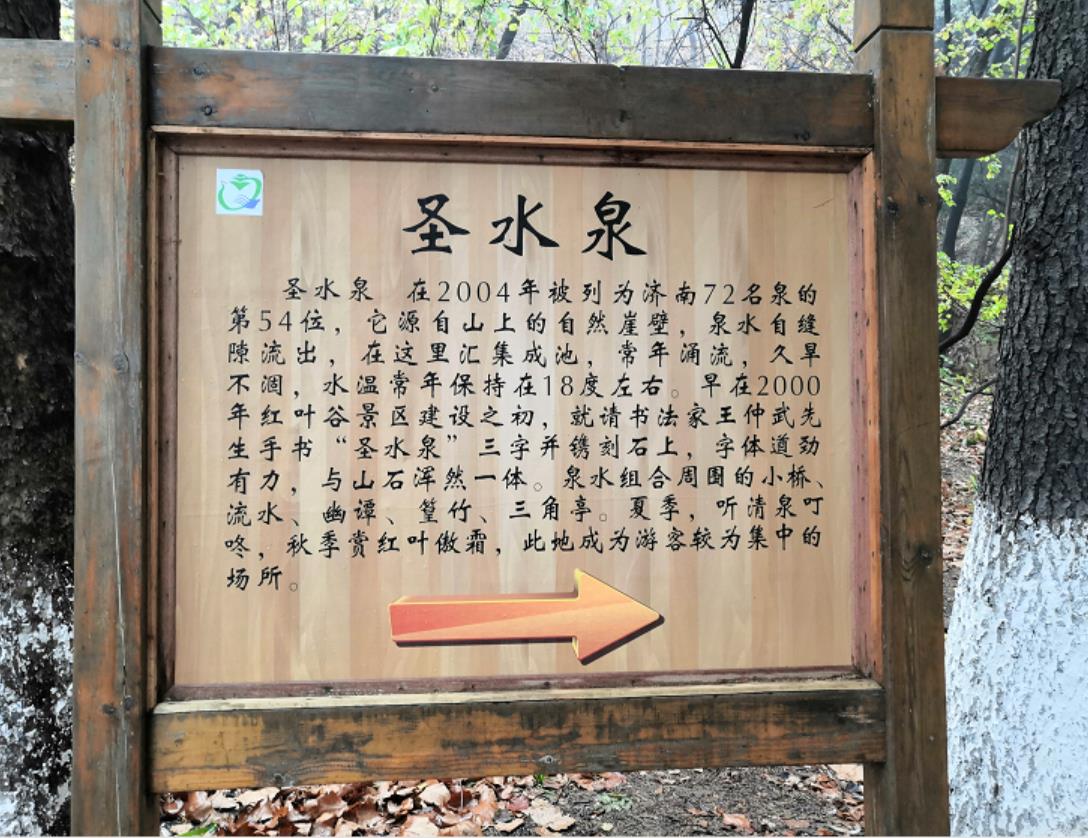 圣水泉
圣水泉 在2004年被列为济南72名泉的
第54位，它源自山上的自然崖壁，泉水自缝
隙流出，在这里汇集成池，常年涌流，久旱
不涸，水温常年保持在18度左右。早在2000
年红叶谷景区建设之初，就请书法家王仲武先
生手书“圣水泉”三字并镌刻石上，字体遒劲
有力，与山石浑然一体。泉水组合周围的小桥、
流水、幽谭、篁竹、三角亭。夏季，听清泉叮
咚，秋季赏红叶傲霜，此地成为游客较为集中的
场所。